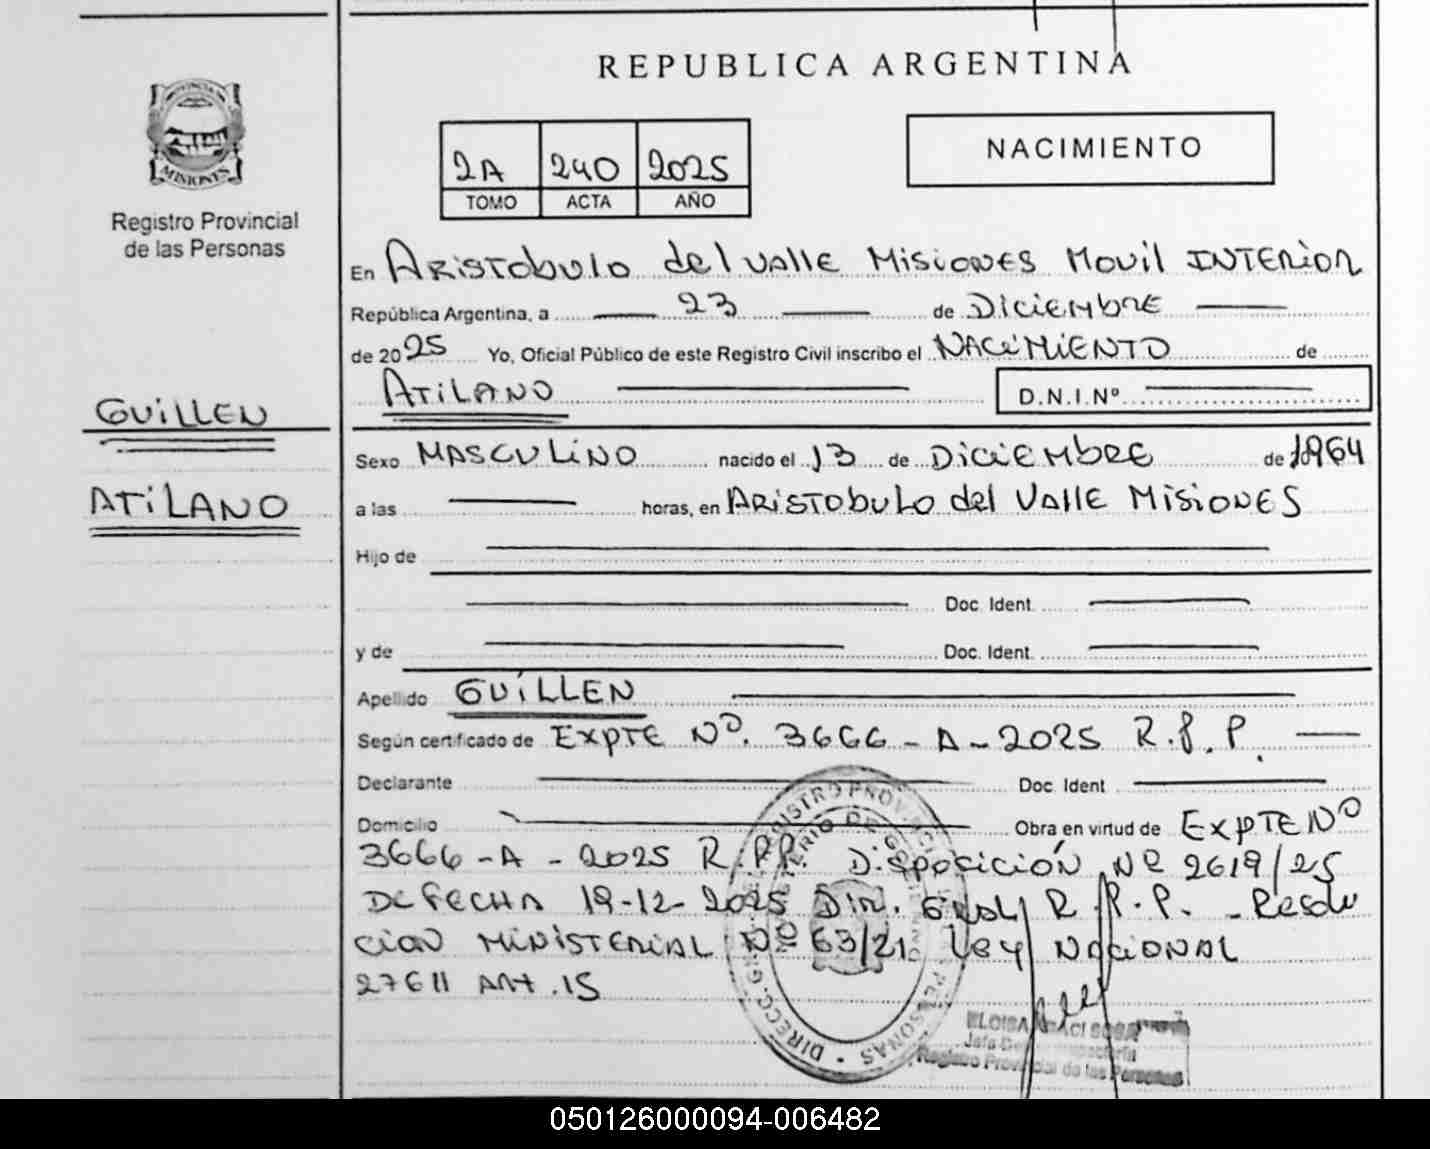 REPUBLICA ARGENTINA
MISIONES
Registro Provincial
de las Personas
2A 240 2025
TOMO ACTA AÑO
NACIMIENTO
En Aristobulo del Valle Misiones Movil Interior
República Argentina, a 23 de Diciembre
de 2025 Yo, Oficial Público de este Registro Civil inscribo el Nacimiento de
Atilano D.N.I.Nº
GUILLEN
ATILANO
Sexo Masculino nacido el 13 de Diciembre de 1964
a las horas, en Aristobulo del Valle Misiones
Hijo de
Doc. Ident.
y de Doc. Ident.
Apellido GUILLEN
Según certificado de Expte Nº. 3666-A-2025 R.P.P.
Declarante Doc. Ident
Domicilio Obra en virtud de Expte Nº
3666-A-2025 R.P.P. Disposición Nº 2619/25
De fecha 19-12-2025 Dir. Gral R.P.P. - Resolu
cion Ministerial Nº 63/21 Ley Nacional
27611 Art. 15
DIRECC. GRAL. REGISTRO PROVINCIAL DE LAS PERSONAS
MINISTERIO DE GOBIERNO
ELOISA
Registro Provincial de las Personas
050126000094-006482